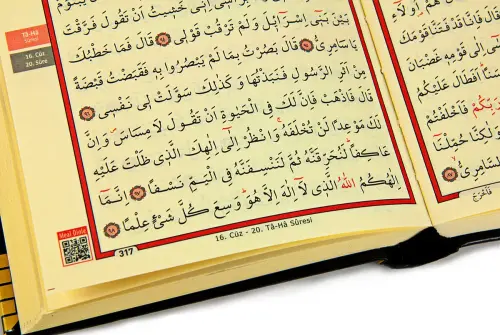 TÂ-HÂ
Sûresi
16. Cüz
20. Sûre
اِنّٖى خَشٖيتُ اَنْ تَقُولَ فَرَّقْتَ
بَيْنَ بَنٖى اِسْرَٓائٖلَ وَلَمْ تَرْقُبْ قَوْلٖى ﴿٩٤﴾ قَالَ فَمَا خَطْبُكَ
يَا سَامِرِىُّ ﴿٩٥﴾ قَالَ بَصُرْتُ بِمَا لَمْ يَبْصُرُوا بِهٖ فَقَبَضْتُ قَبْضَةً
مِنْ اَثَرِ الرَّسُولِ فَنَبَذْتُهَا وَكَذٰلِكَ سَوَّلَتْ لٖى نَفْسٖى ﴿٩٦﴾
قَالَ فَاذْهَبْ فَاِنَّ لَكَ فِى الْحَيٰوةِ اَنْ تَقُولَ لَا مِسَاسَ وَاِنَّ
لَكَ مَوْعِدًا لَنْ تُخْلَفَهُ وَانْظُرْ اِلٰٓى اِلٰهِكَ الَّذٖى ظَلْتَ عَلَيْهِ
عَاكِفًا لَنُحَرِّقَنَّهُ ثُمَّ لَنَنْسِفَنَّهُ فِى الْيَمِّ نَسْفًا ﴿٩٧﴾ اِنَّمَٓا
اِلٰهُكُمُ اللّٰهُ الَّذٖى لَٓا اِلٰهَ اِلَّا هُوَ وَسِعَ كُلَّ شَیْءٍ عِلْمًا ﴿٩٨﴾
317
16. Cüz - 20. Tâ-Hâ Sûresi
هُمْ اُولَٓاءِ
قَالَ فَاِنَّا قَدْ فَتَنَّا
اِلٰى قَوْمِهٖ غَضْبَانَ
اَفَطَالَ عَلَيْكُمُ
فَاَخْلَفْتُمْ
حُمِّلْنَٓا
فَاَخْرَجَ